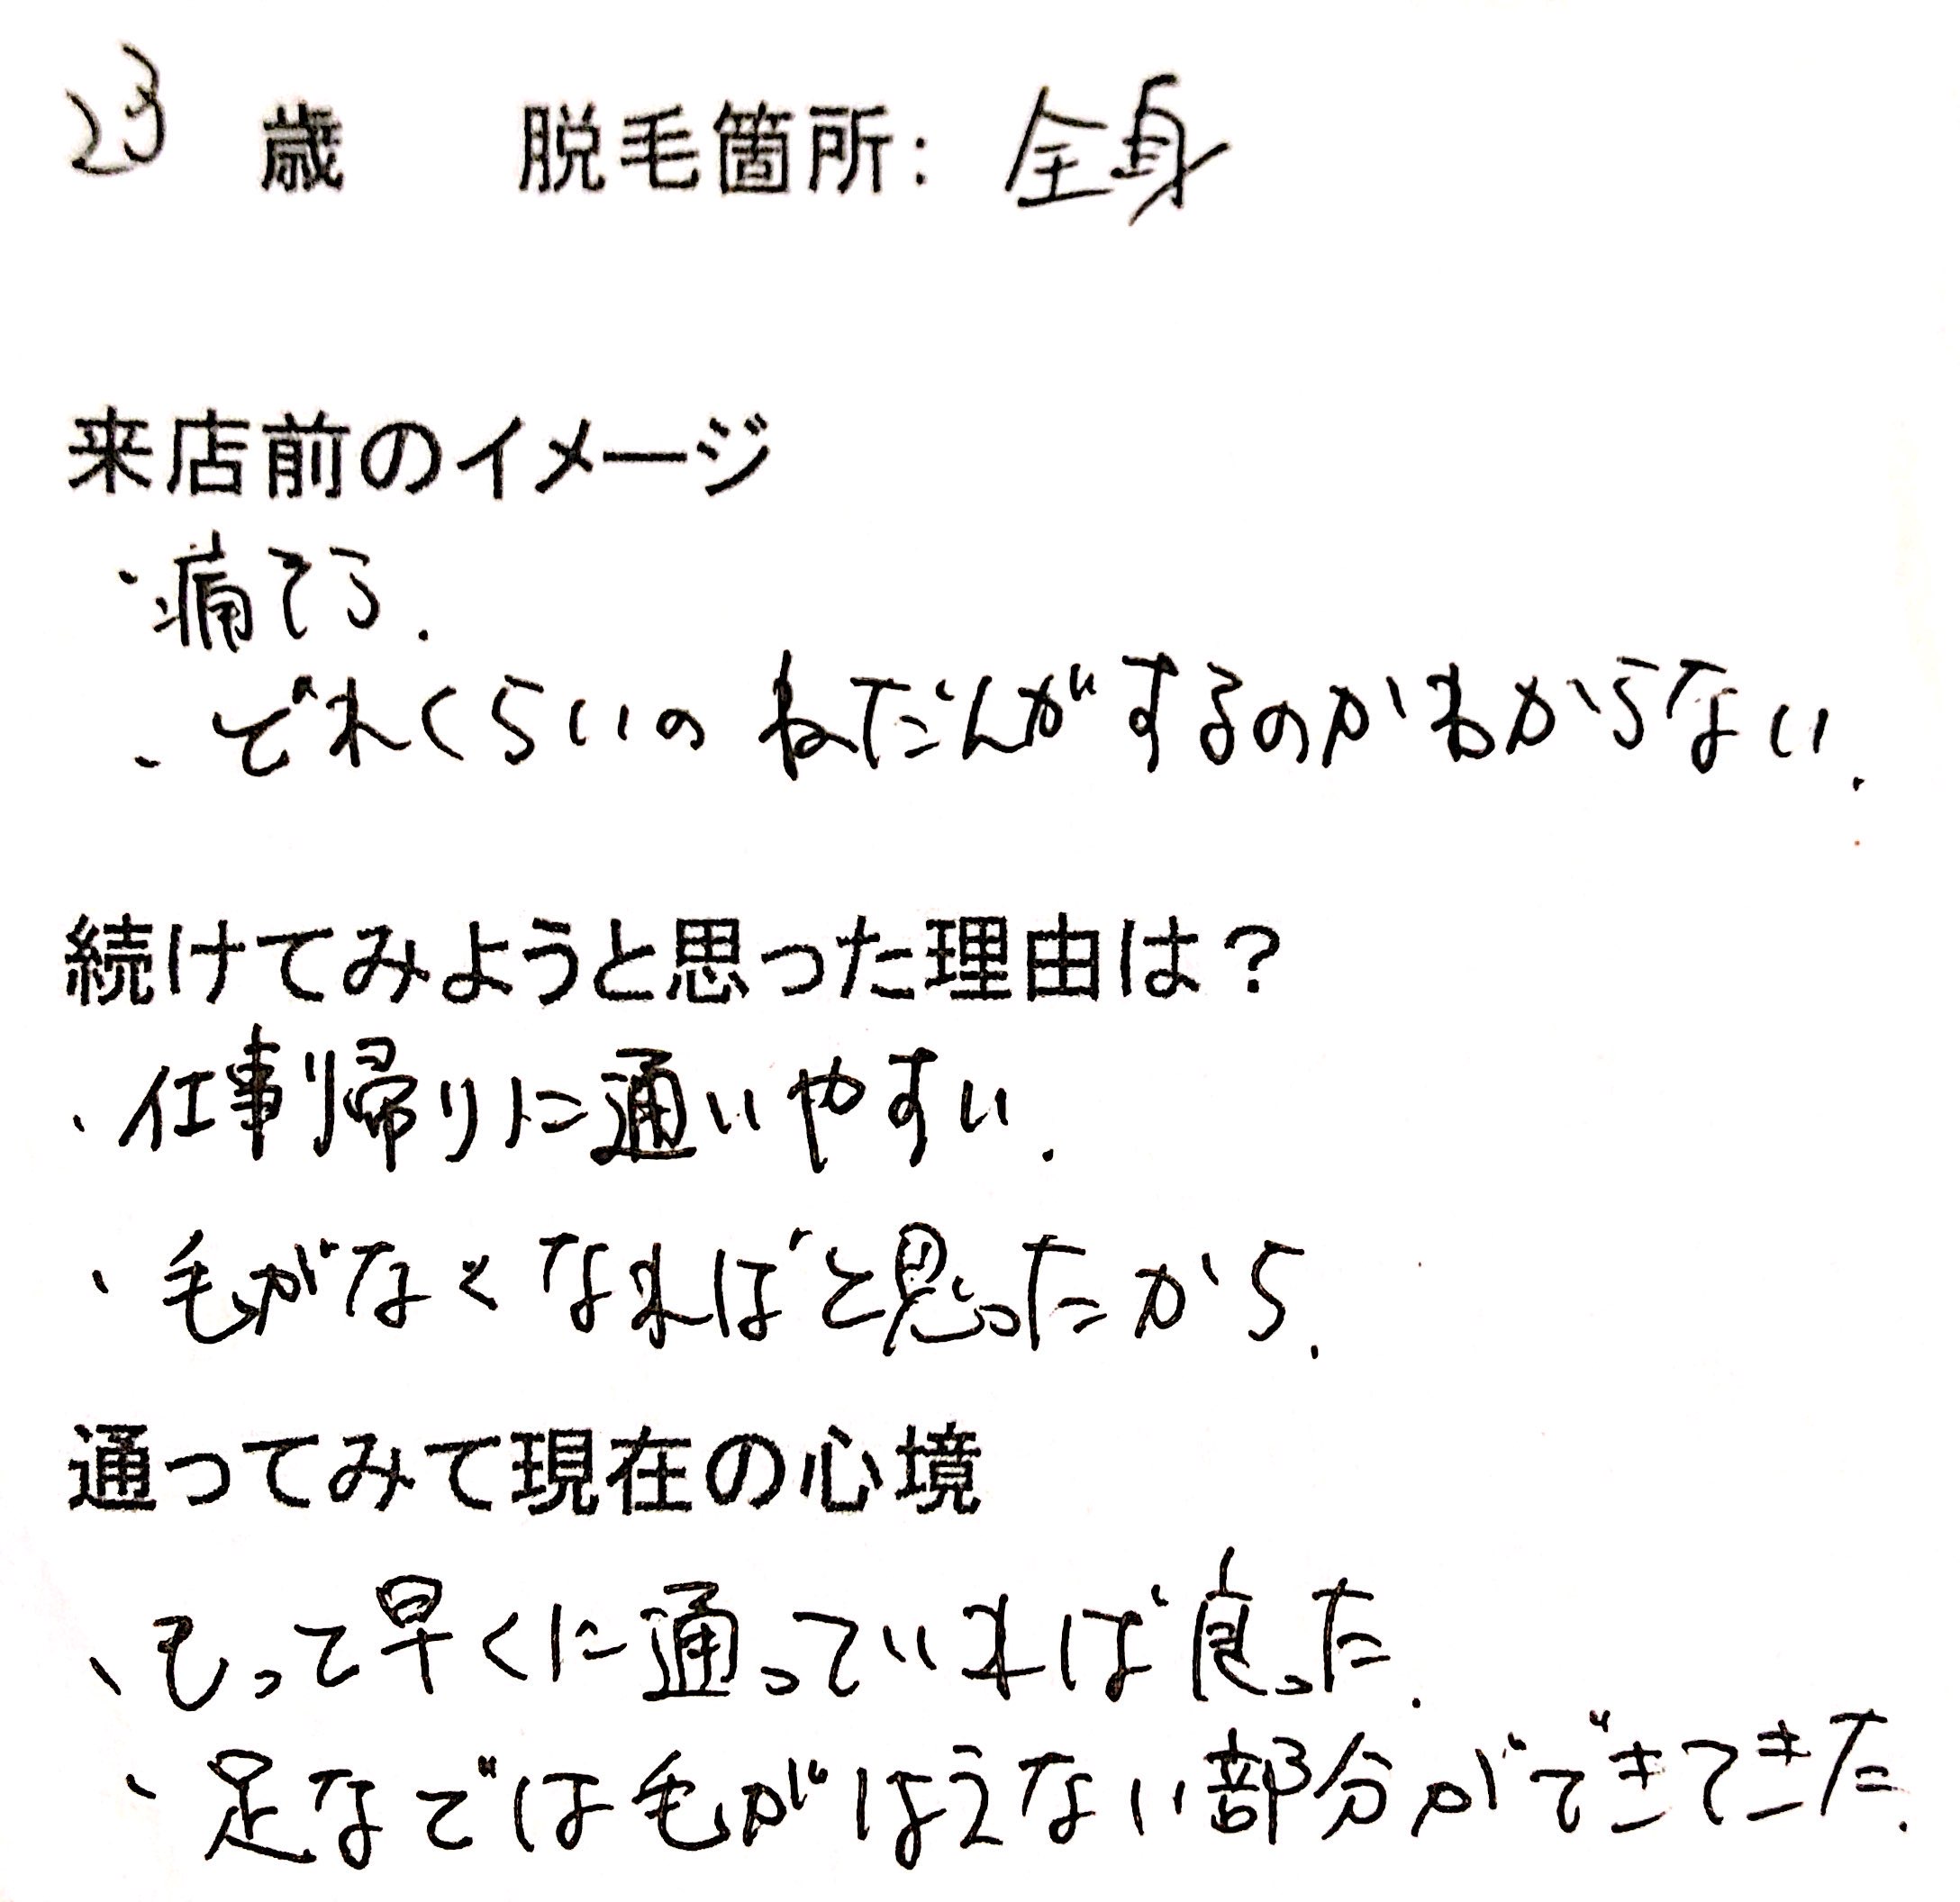 23 歳 脱毛箇所: 全身
来店前のイメージ
・痛そう.
・どれくらいのねだんがするのかわからない.
続けてみようと思った理由は?
・仕事帰りに通いやすい.
・毛がなくなればと思ったから.
通ってみて現在の心境
・もって早くに通っていれば良った.
・足などは毛がはえない部分ができてきた.